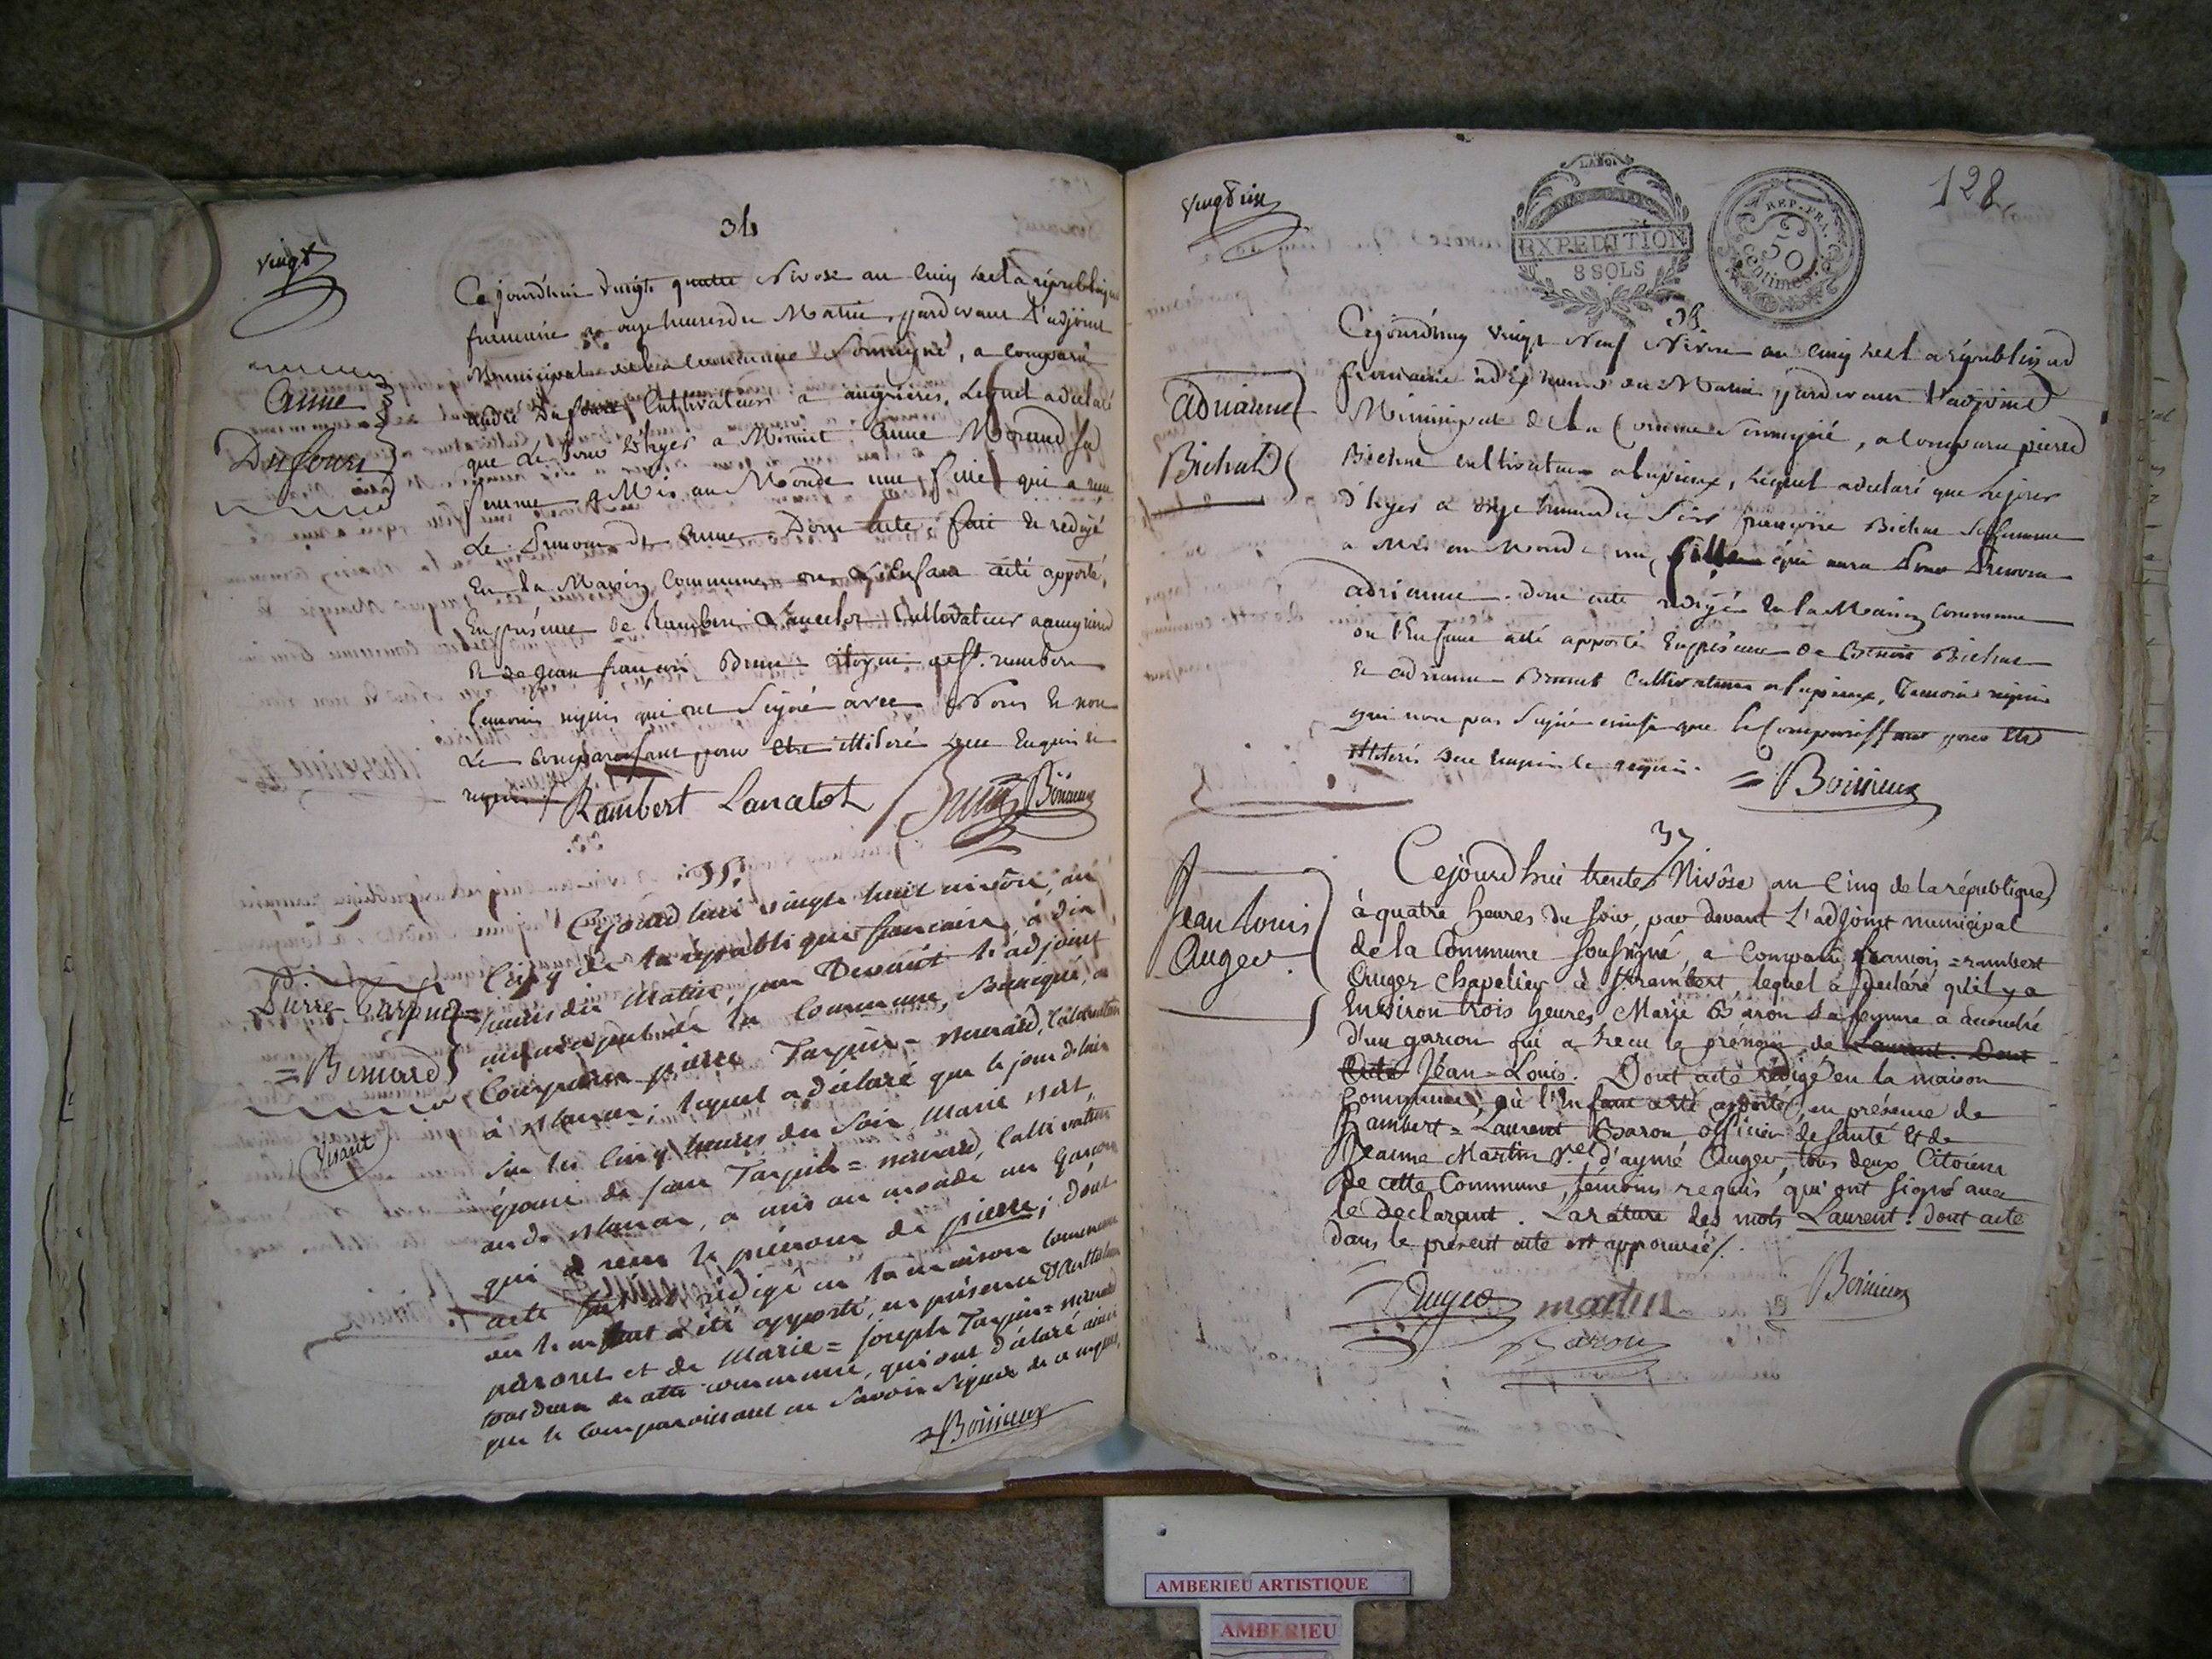 34
vingt
Anne
Dufour
Cejourd'hui vingt quatre Nivose an Cinq de la république
francaise a onze heures du Matin, pardevant l'adjoint
Municipal de la Commune Soussigné, a Comparu
andré Dufour Cultivateur a angrieres, Lequel a declaré
que Le jour d'hyer a Minuit Anne Morand sa
femme a Mis au Monde une fille qui a reçu
Le Prenom de Anne. Dont acte fait et redigé
En la Maison Commune ou L'Enfant a été apporté,
En présence de Rambert Lancelot Cultivateur a angrieres
et de Jean françois Brun Citoyen a St. rambert
temoins requis qui ont Signé avec Nous et non
Le Comparoissant pour Etre illiteré de ce Enquis et
requis /.
Rambert Lancelot Brun Boinieux
35
Pierre Tarpin =
= Bernard
Cejourd'hui vingt huit nivôse, an
Cinq de la république francaise, à dix
heures du Matin, par Devant l'adjoint
municipal de la Commune, Soussigné, a
Comparu pierre Tarpin = , Cultivateur
à ; lequel a déclaré que le jour d'hier
sur les Cinq heures du Soir, Marie
épouse de Jean Tarpin = , Cultivateur
au dt. , a mis au monde un Garçon
qui a reçu le prénom de pierre; dont
acte fait et rédigé en la maison Commune
ou l'enfant a été apporté, en présence d'Anthelme
et de Marie = Joseph Tarpin =
tous deux de cette commune, qui ont déclaré ainsi
que le Comparoissant ne Savoir Signer de ce requis.
= Boinieux
vingt six
EXPEDITION
8 SOLS
REP. FRA.
50
Centimes
128
36
Adrianne
Bichat
Cejourd'huy vingt Neuf Nivose an Cinq de la république
francaise a dix heures du Matin, pardevant l'adjoint
Municipal de la Commune Soussigné, a Comparu pierre
Bichat cultivateur a lupieux, Lequel a declaré que Lejour
d'hyer a onze heures du Soir françoise Bichat Sa femme
a Mis au Monde une fille qui aura Pour Prenom
adrianne. dont acte redigé En la Maison Commune
ou l'Enfant a été apporté En présence de Benoit Bichat
et adrianne Brunet Cultivateurs a lupieux, temoins requis
qui n'ont pas Signé ainsi que le Comparoissant pour Etre
illiterés de ce Enquis et requis.
= Boinieux
37
Jean Louis
Auger.
Cejourd'hui trente Nivôse an Cinq de la république
à quatre heures du soir, par devant L'adjoint municipal
de la Commune Soussigné, a Comparu francois = rambert
Auger Chapelier à St rambert, lequel a déclaré qu'il y a
Environ trois heures, Marie Baron sa femme a accouché
d'un garcon qui a recu le prénom de Laurent. Dont
Acte Jean = Louis. Dont acte rédigé en la maison
Commune, où l'Enfant a été apporté, en présence de
Rambert = Laurent Baron officier de santé et de
Jeanne Martin Ve. d'aymé Auger, tous deux Citoiens
de cette Commune, témoins requis qui ont signé avec
le déclarant. La rature des mots Laurent. dont acte
dans le présent acte est approuvée /.
Auger martin Boinieux
Baron
AMBERIEU ARTISTIQUE
AMBERIEU